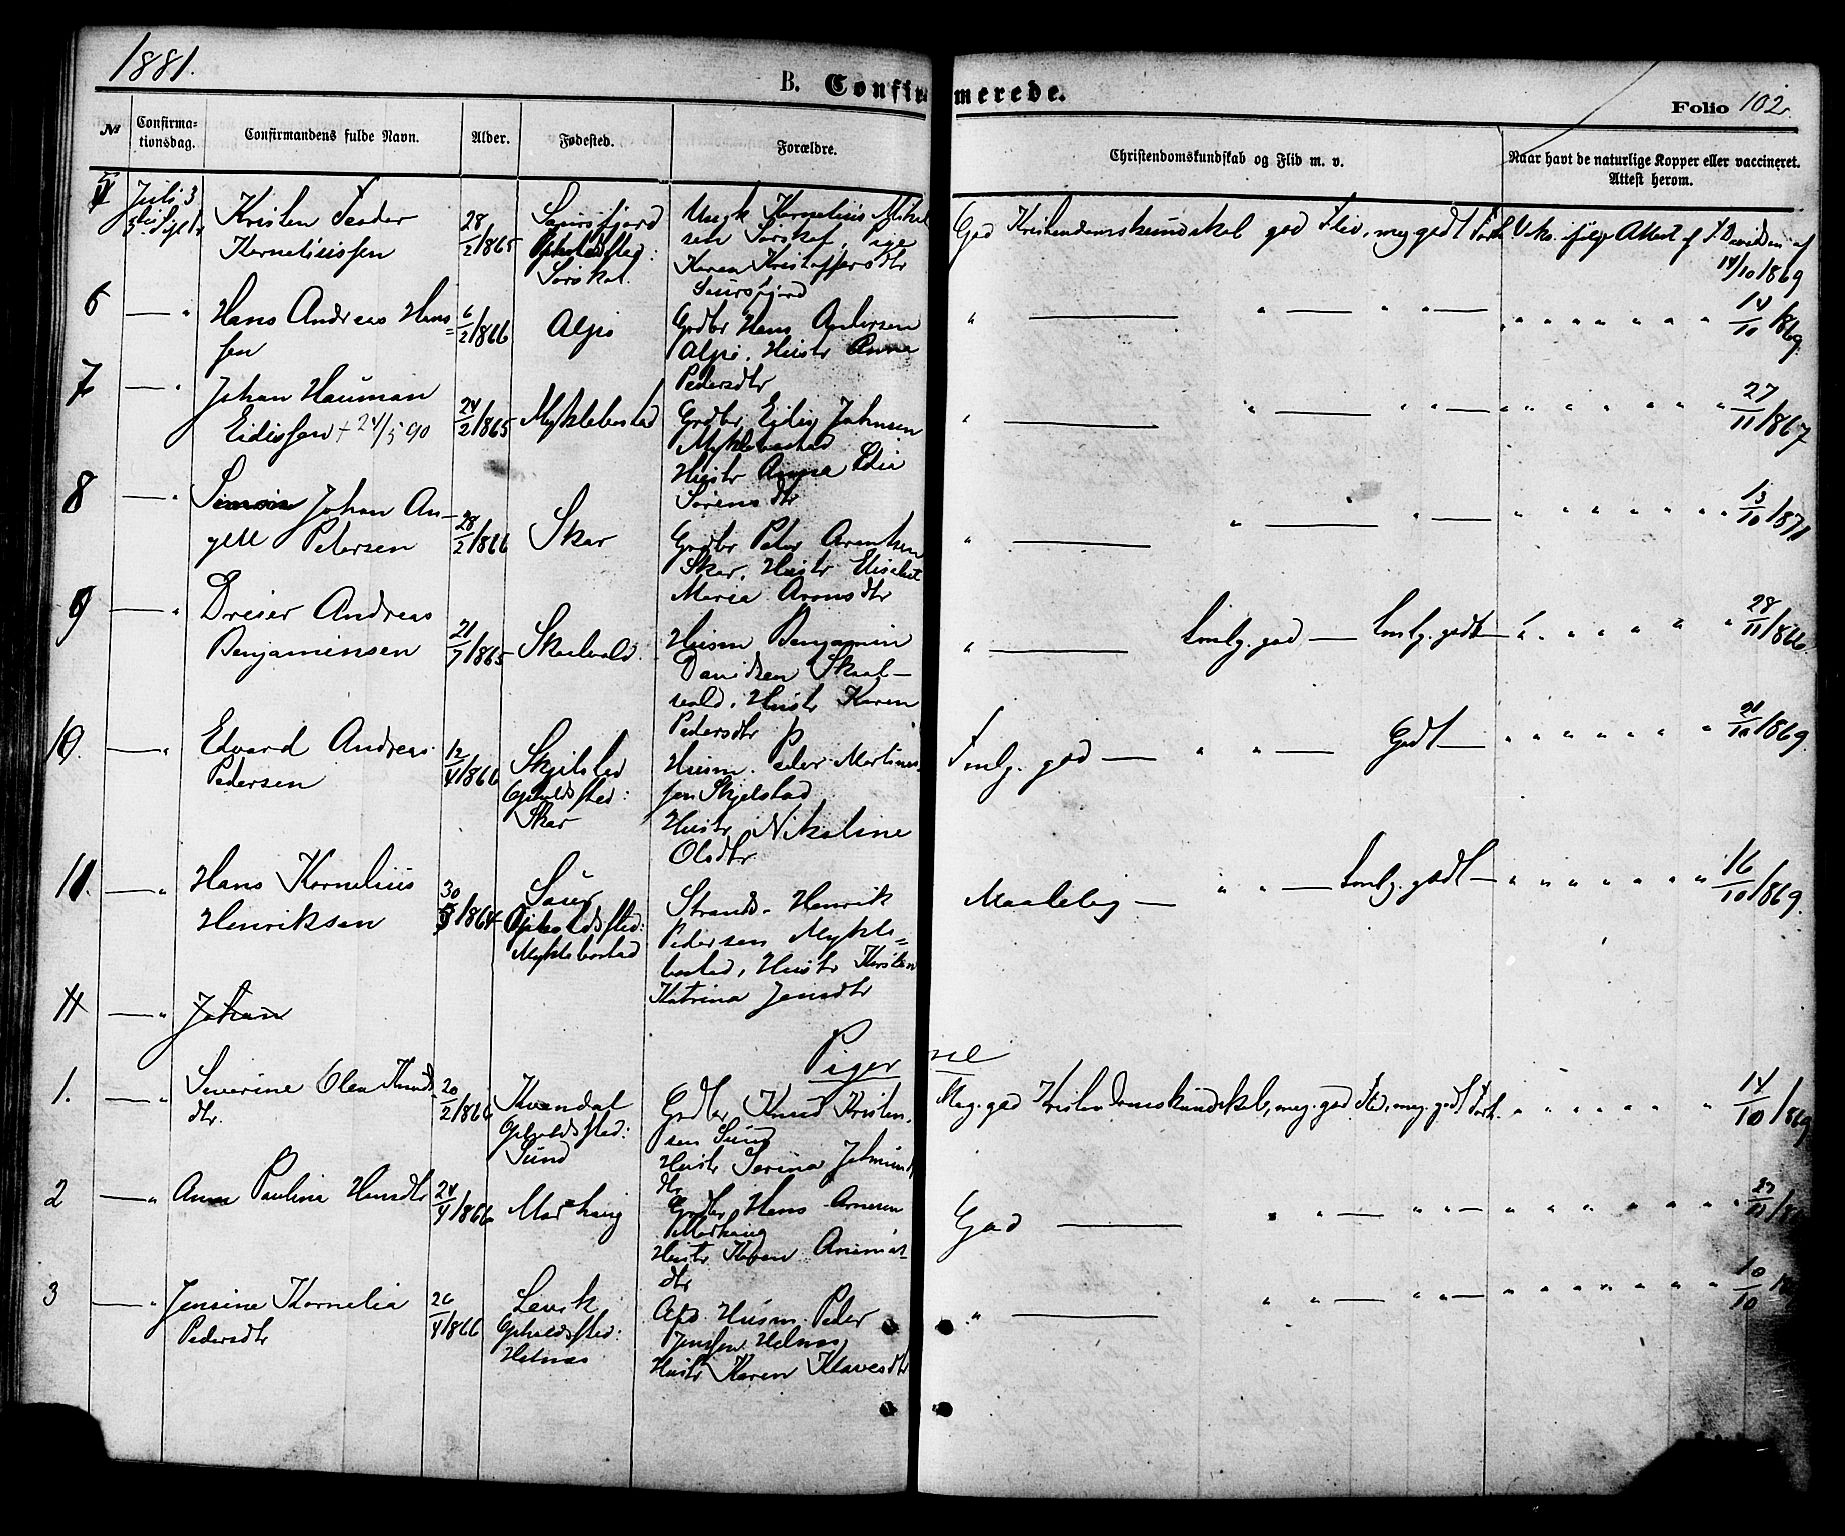 1881.
B. Confirmerede.
Folio 102.
№
Confirmationsdag.
Confirmandens fulde Navn.
Alder.
Fødested.
Forældre.
Christendomskundskab og Flid m. v.
Naar havt de naturlige Kopper eller vaccineret.
Attest herom.
5
Juli 3
Kristen Teodor
Korneliussen
28/2/1865
Saursfjord
Opholdssted:
Sørskot
Ungk. Kornelius Mikel
sen Sørskot, Pige
Karen Kristoffersdtr
Saursfjord
God Kristendomskundskab god Flid, meg. godt Forh.
Vks. ifølge Attest af
14/10 1869
6
— "
Hans Andreas Hans=
sen
6/2/1866
Alpø
Grdbr Hans Andersen
Alpø. Hustr Anna
Pedersdtr
" — " — " " —
" " " " " " " 14/10 1869
7
— "
Johan Hauman
Eidissen + 24/5 90
24/2/1865
Myklebostad
Grdbr Eidis Johnsen
Myklebostad
Hustr Anna Edia
Sørensdtr
" — " — " " —
" " " " " " " 27/11 1867
8
— "
Simon Johan An-
gell Petersen
28/2/1866
Skar
Grdbr Peter Arentsen
Skar, Hustr Elisabet
Maria Aronsdtr
" — " — " —
" " " " " " " 13/10 1871
9
— "
Dreier Andreas
Benjaminsen
21/7/1865
Skaelvold
Husm Benjamin
Davidsen Skaal-
vold, Hustr Karen
Pedersdtr
" — Temlg. god — Temlg. godt —
" " " " " " 28/11 1866
10.
— "
Edvard Andreas
Pedersen
12/4/1866
Skjelsted
Opholdssted:
Skar
Husm. Peder Martinus-
sen Skjelstad
Hustr Nikoline
Olsdtr
Temlg. god — " " — Godt —
" " " " " " " 21/10 1869
11.
— "
Hans Kornelius
Henriksen
30/3/1864
Saur
Opholdssted:
Myklebostad
Strands. Henrik
Pedersen Mykle=
bostad, Hustr Kirsten
Katrina Jensdtr
Maadelig — " " — Temlg. godt —
" " " " " " " 16/10 1869
11
— "
Johan
Piger
1.
— "
Severine Olea Knuds
dtr.
20/2/1866
Kvandal
Opholdssted:
Sund
Grdbr Knud Kristen.
sen Sund
Hustr Serina Johnsens
dtr
Meg. god Kristendomskundskab, meg. god Flid, meg. godt Forh.
" " " " " " 14/10 1869
2
— "
Anna Paulina Hansdtr
24/4/1866
Marhaug
Grdbr Hans Arnesen
Marhaug
Hustr Karen
dtr
God — " " — " " —
" " " " " " " 27/11/18
3
— "
Jensine Kornelia
Pedersdtr
26/4/1866
Leivik
Opholdssted:
Helnæs
Afd. Husm. Peder
Jenssen Helnæs
Hustr Karen Klavesdtr
" — " " — " " —
" " " " " " " 10/10 18